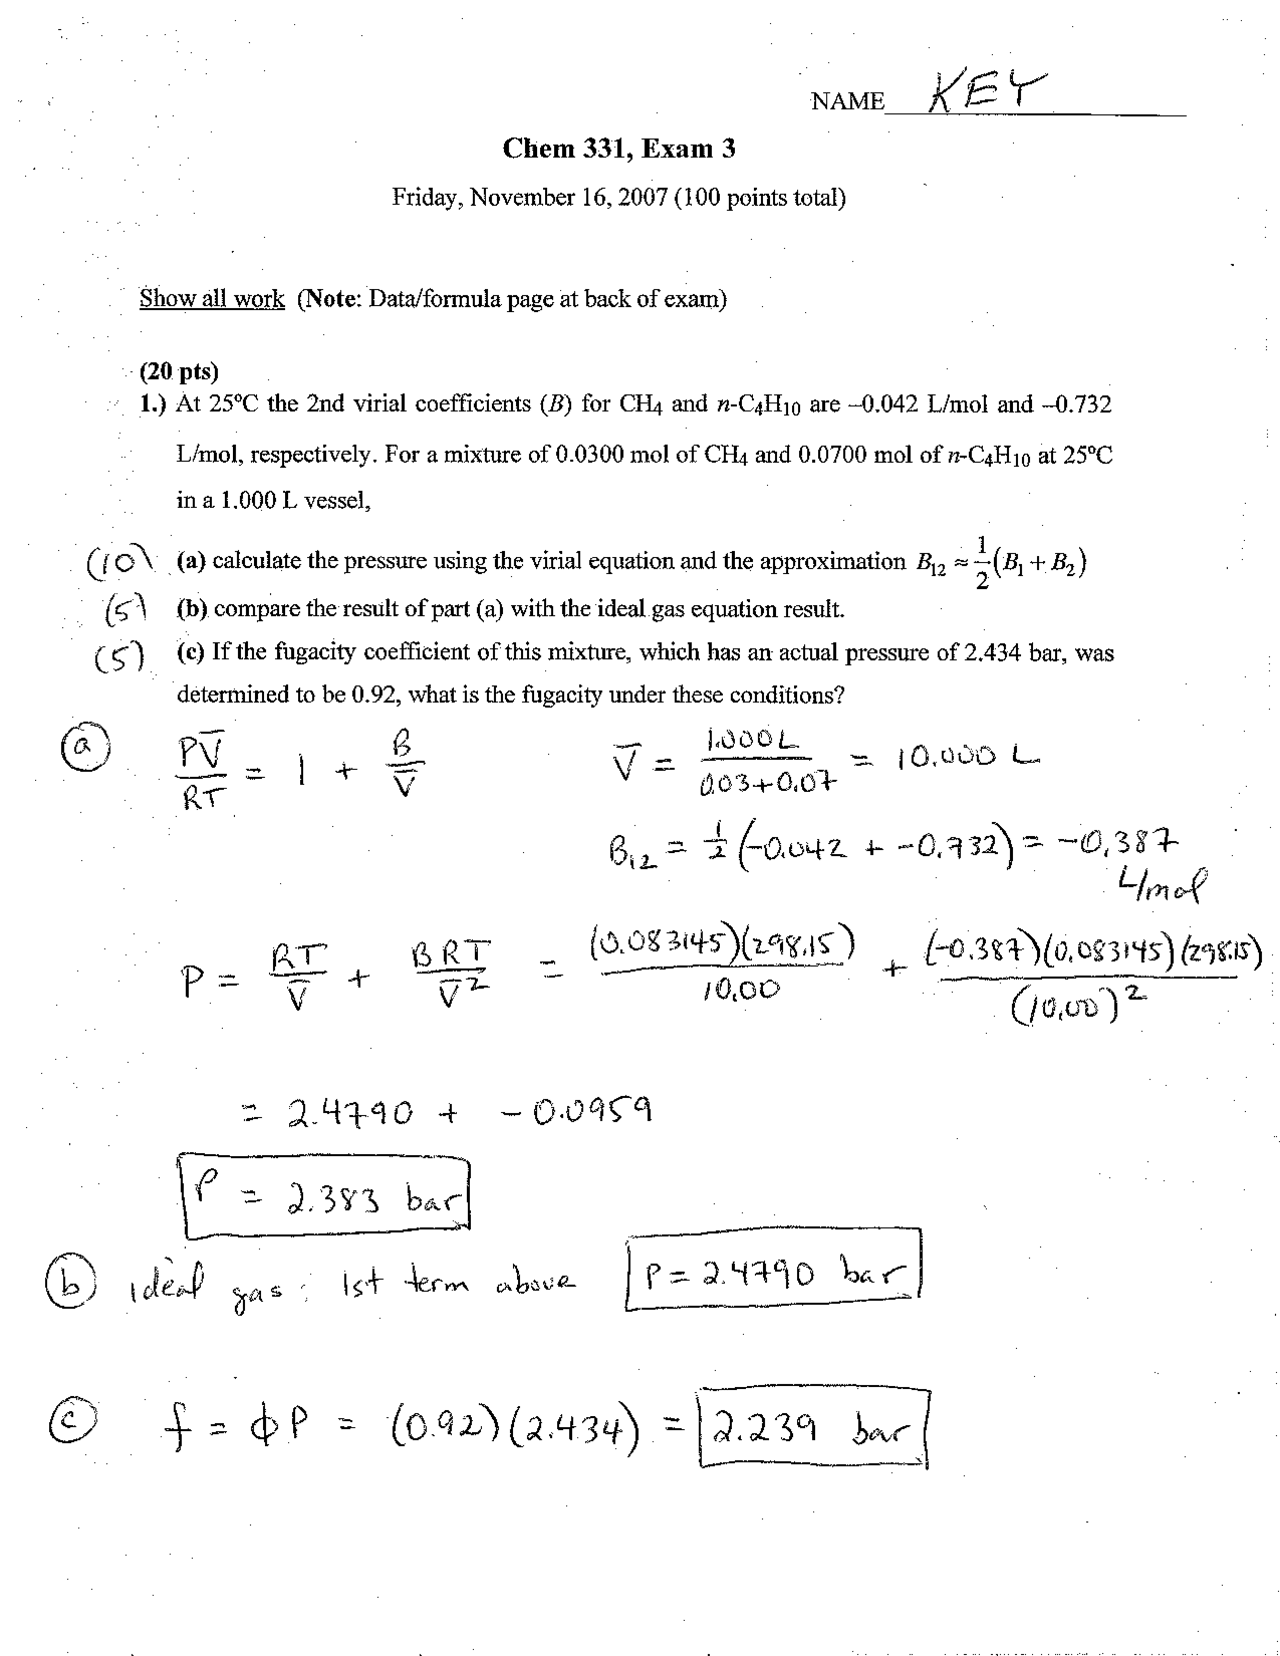 NAME KEY
Chem 331, Exam 3
Friday, November 16, 2007 (100 points total)
Show all work (Note: Data/formula page at back of exam)
(20 pts)
1.) At 25°C the 2nd virial coefficients (B) for CH4 and n-C4H10 are –0.042 L/mol and –0.732
L/mol, respectively. For a mixture of 0.0300 mol of CH4 and 0.0700 mol of n-C4H10 at 25°C
in a 1.000 L vessel,
(10) (a) calculate the pressure using the virial equation and the approximation B12 ≈ 1/2 (B1 + B2)
(5) (b) compare the result of part (a) with the ideal gas equation result.
(5) (c) If the fugacity coefficient of this mixture, which has an actual pressure of 2.434 bar, was
determined to be 0.92, what is the fugacity under these conditions?
(a) PV̅/RT = 1 + B/V̅ V̅ = 1.000L/0.03+0.07 = 10.000 L
B12 = 1/2 (-0.042 + -0.732) = -0.387
L/mol
P = RT/V̅ + BRT/V̅² = (0.083145)(298.15)/10.00 + (-0.387)(0.083145)(298.15)/(10.00)²
= 2.4790 + -0.0959
P = 2.383 bar
(b) ideal gas: 1st term above P = 2.4790 bar
(c) f = ϕP = (0.92)(2.434) = 2.239 bar